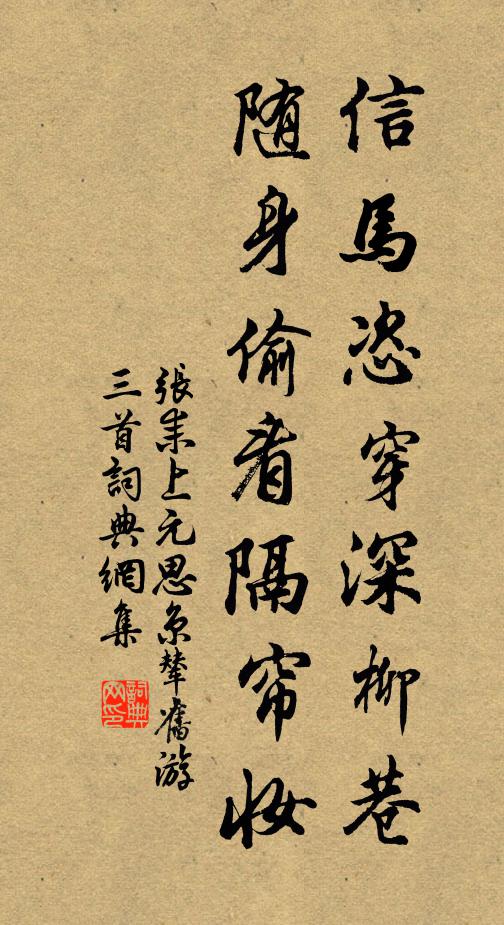 信馬恣穿深柳巷
随身偷看隔帘妆
張耒上元思京輦舊游
三首詞典網集
詞典
网印